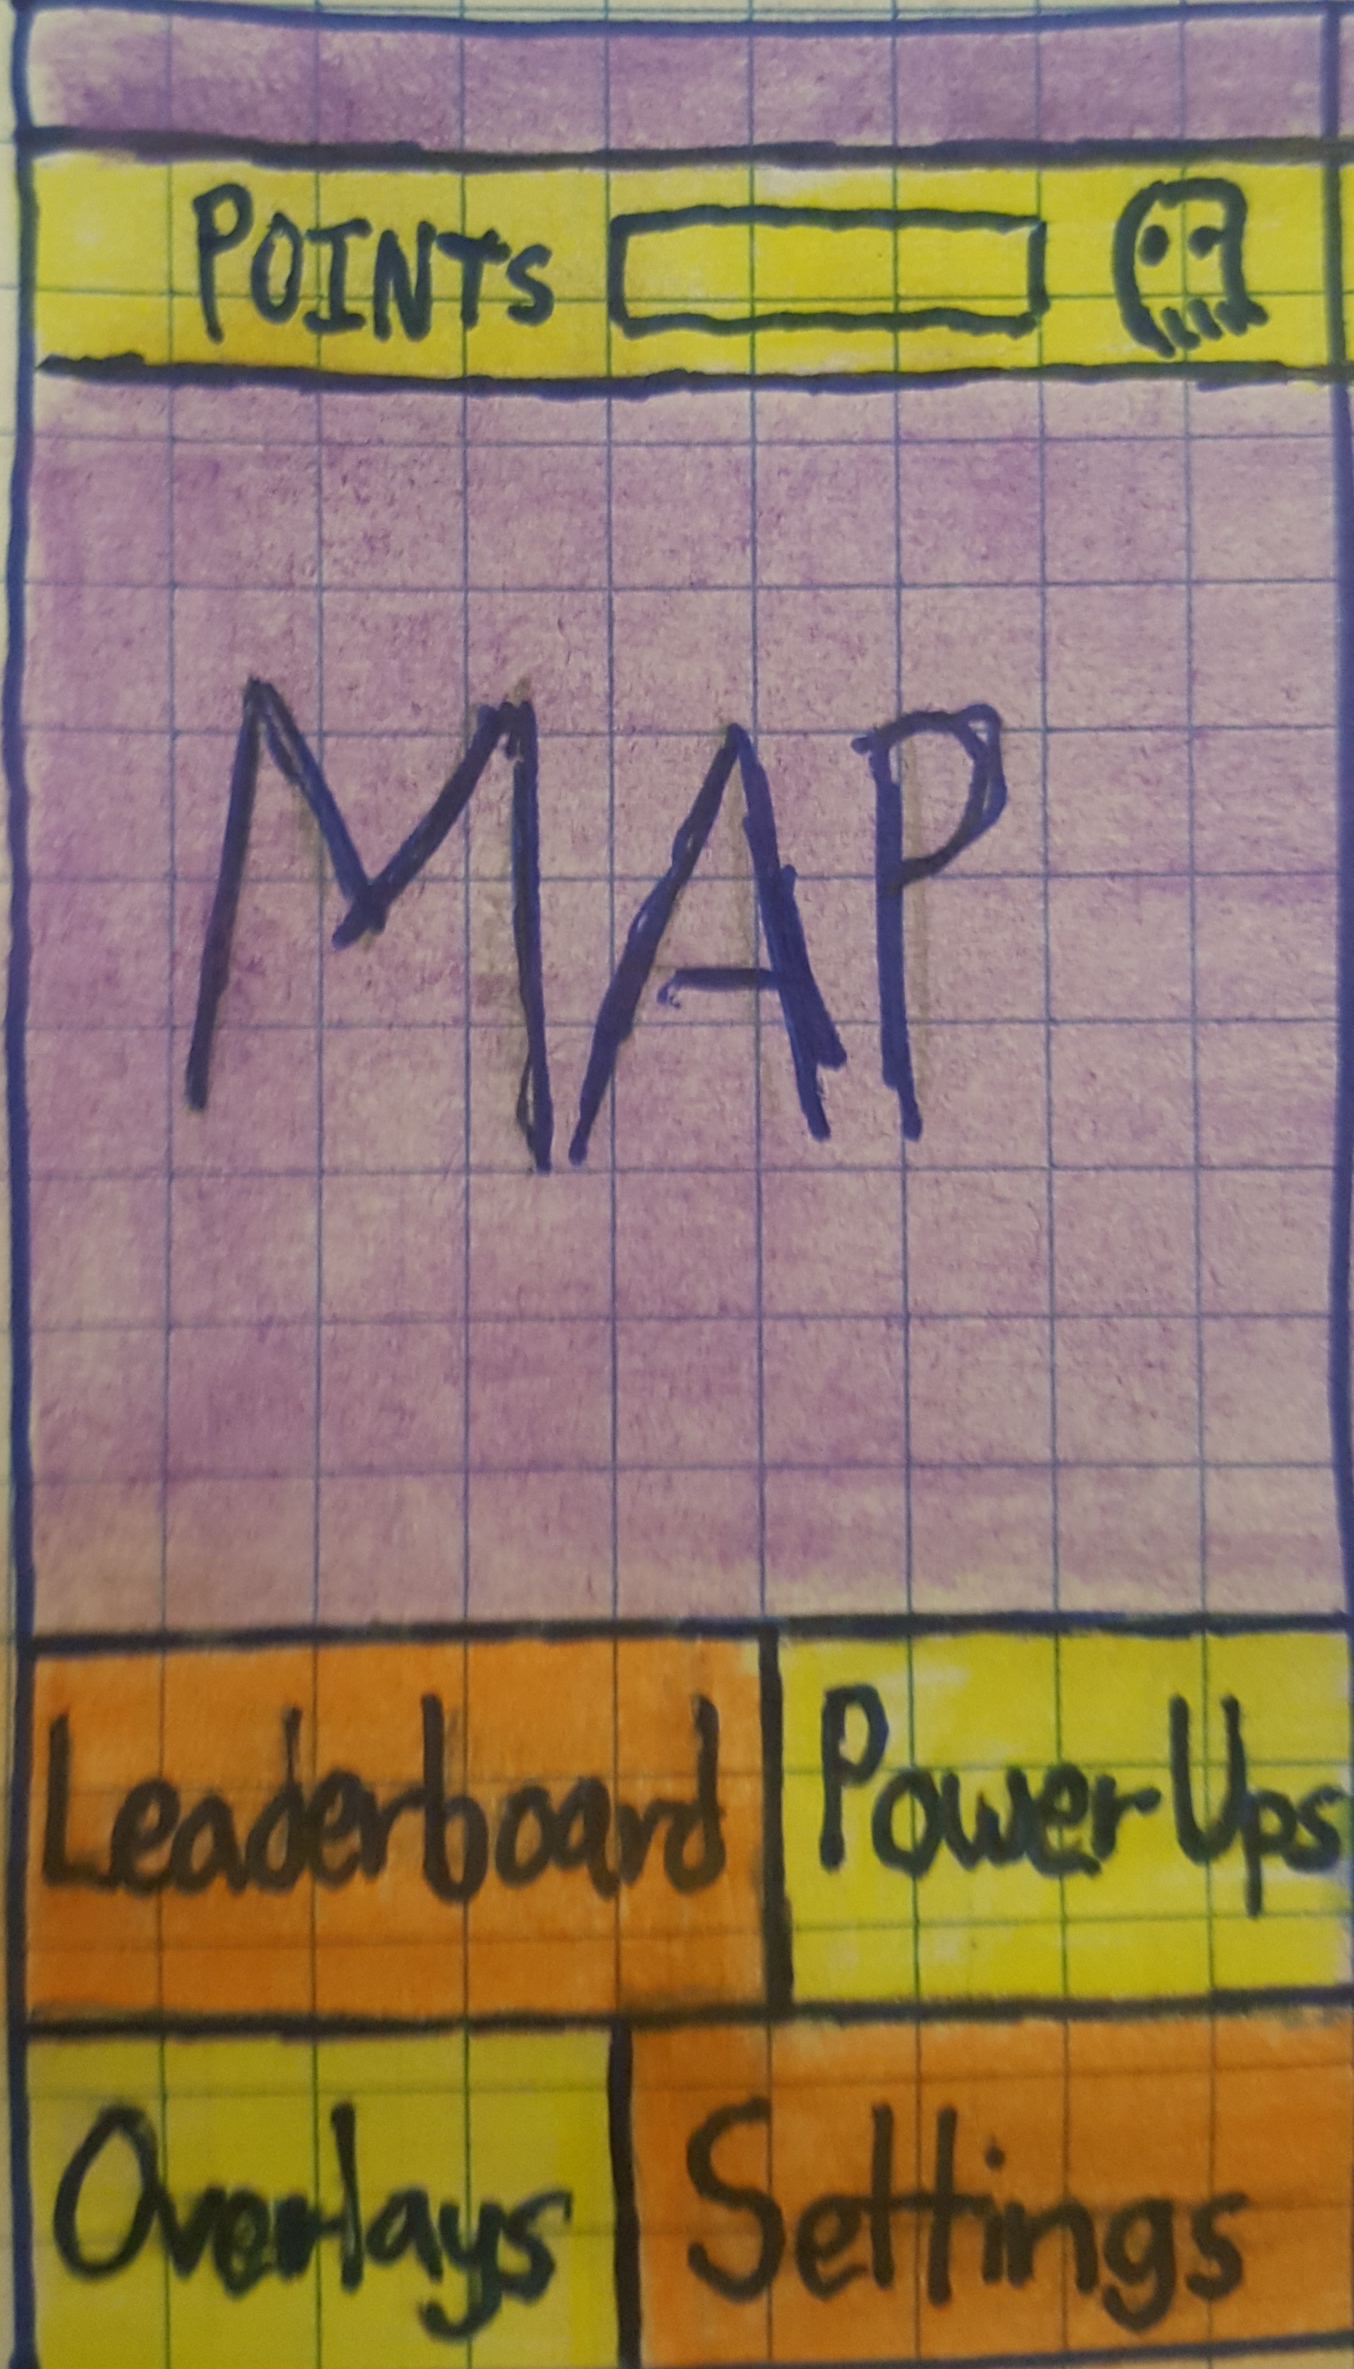 POINTS
MAP
Leaderboard
Power Ups
Overlays
Settings